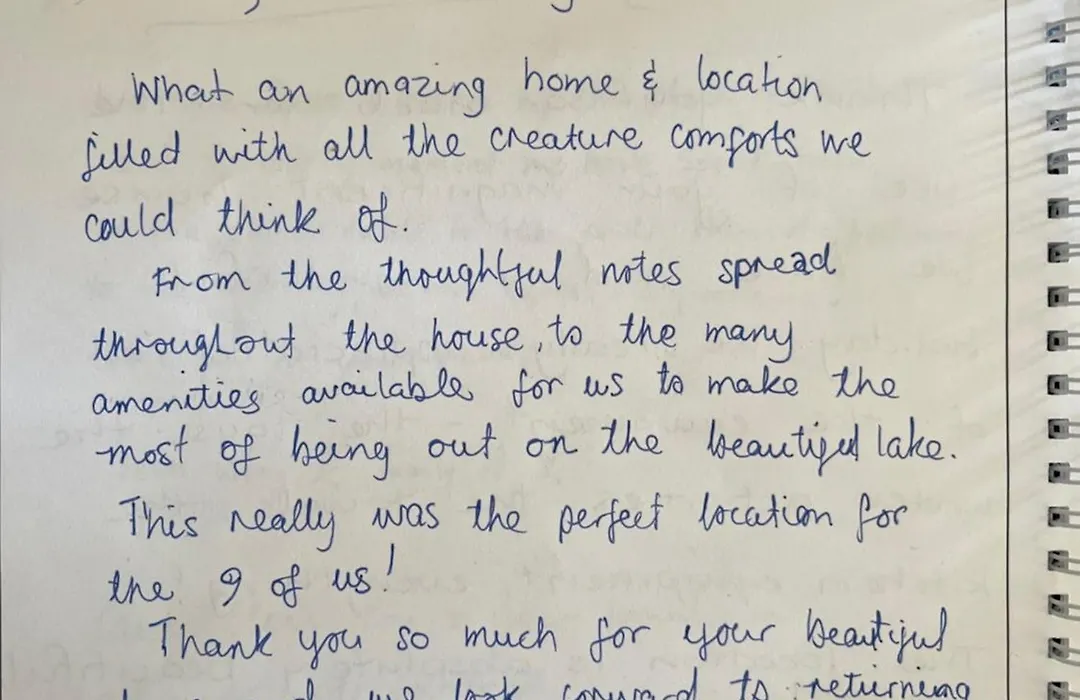 What an amazing home & location
filled with all the creature comforts we
could think of.
From the thoughtful notes spread
throughout the house, to the many
amenities available for us to make the
most of being out on the beautiful lake.
This really was the perfect location for
the 9 of us!
Thank you so much for your beautiful
we look forward to returning